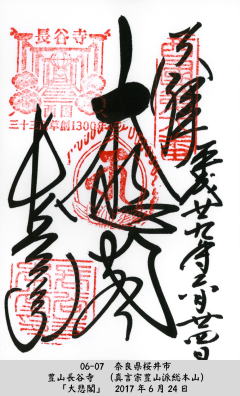 奉拝
平成廿九年六月廿四日
長谷寺
三十三所草創1300年
大悲閣
長谷寺
06-07 奈良県桜井市
豊山長谷寺 (真言宗豊山派総本山)
「大悲閣」 2017年6月24日